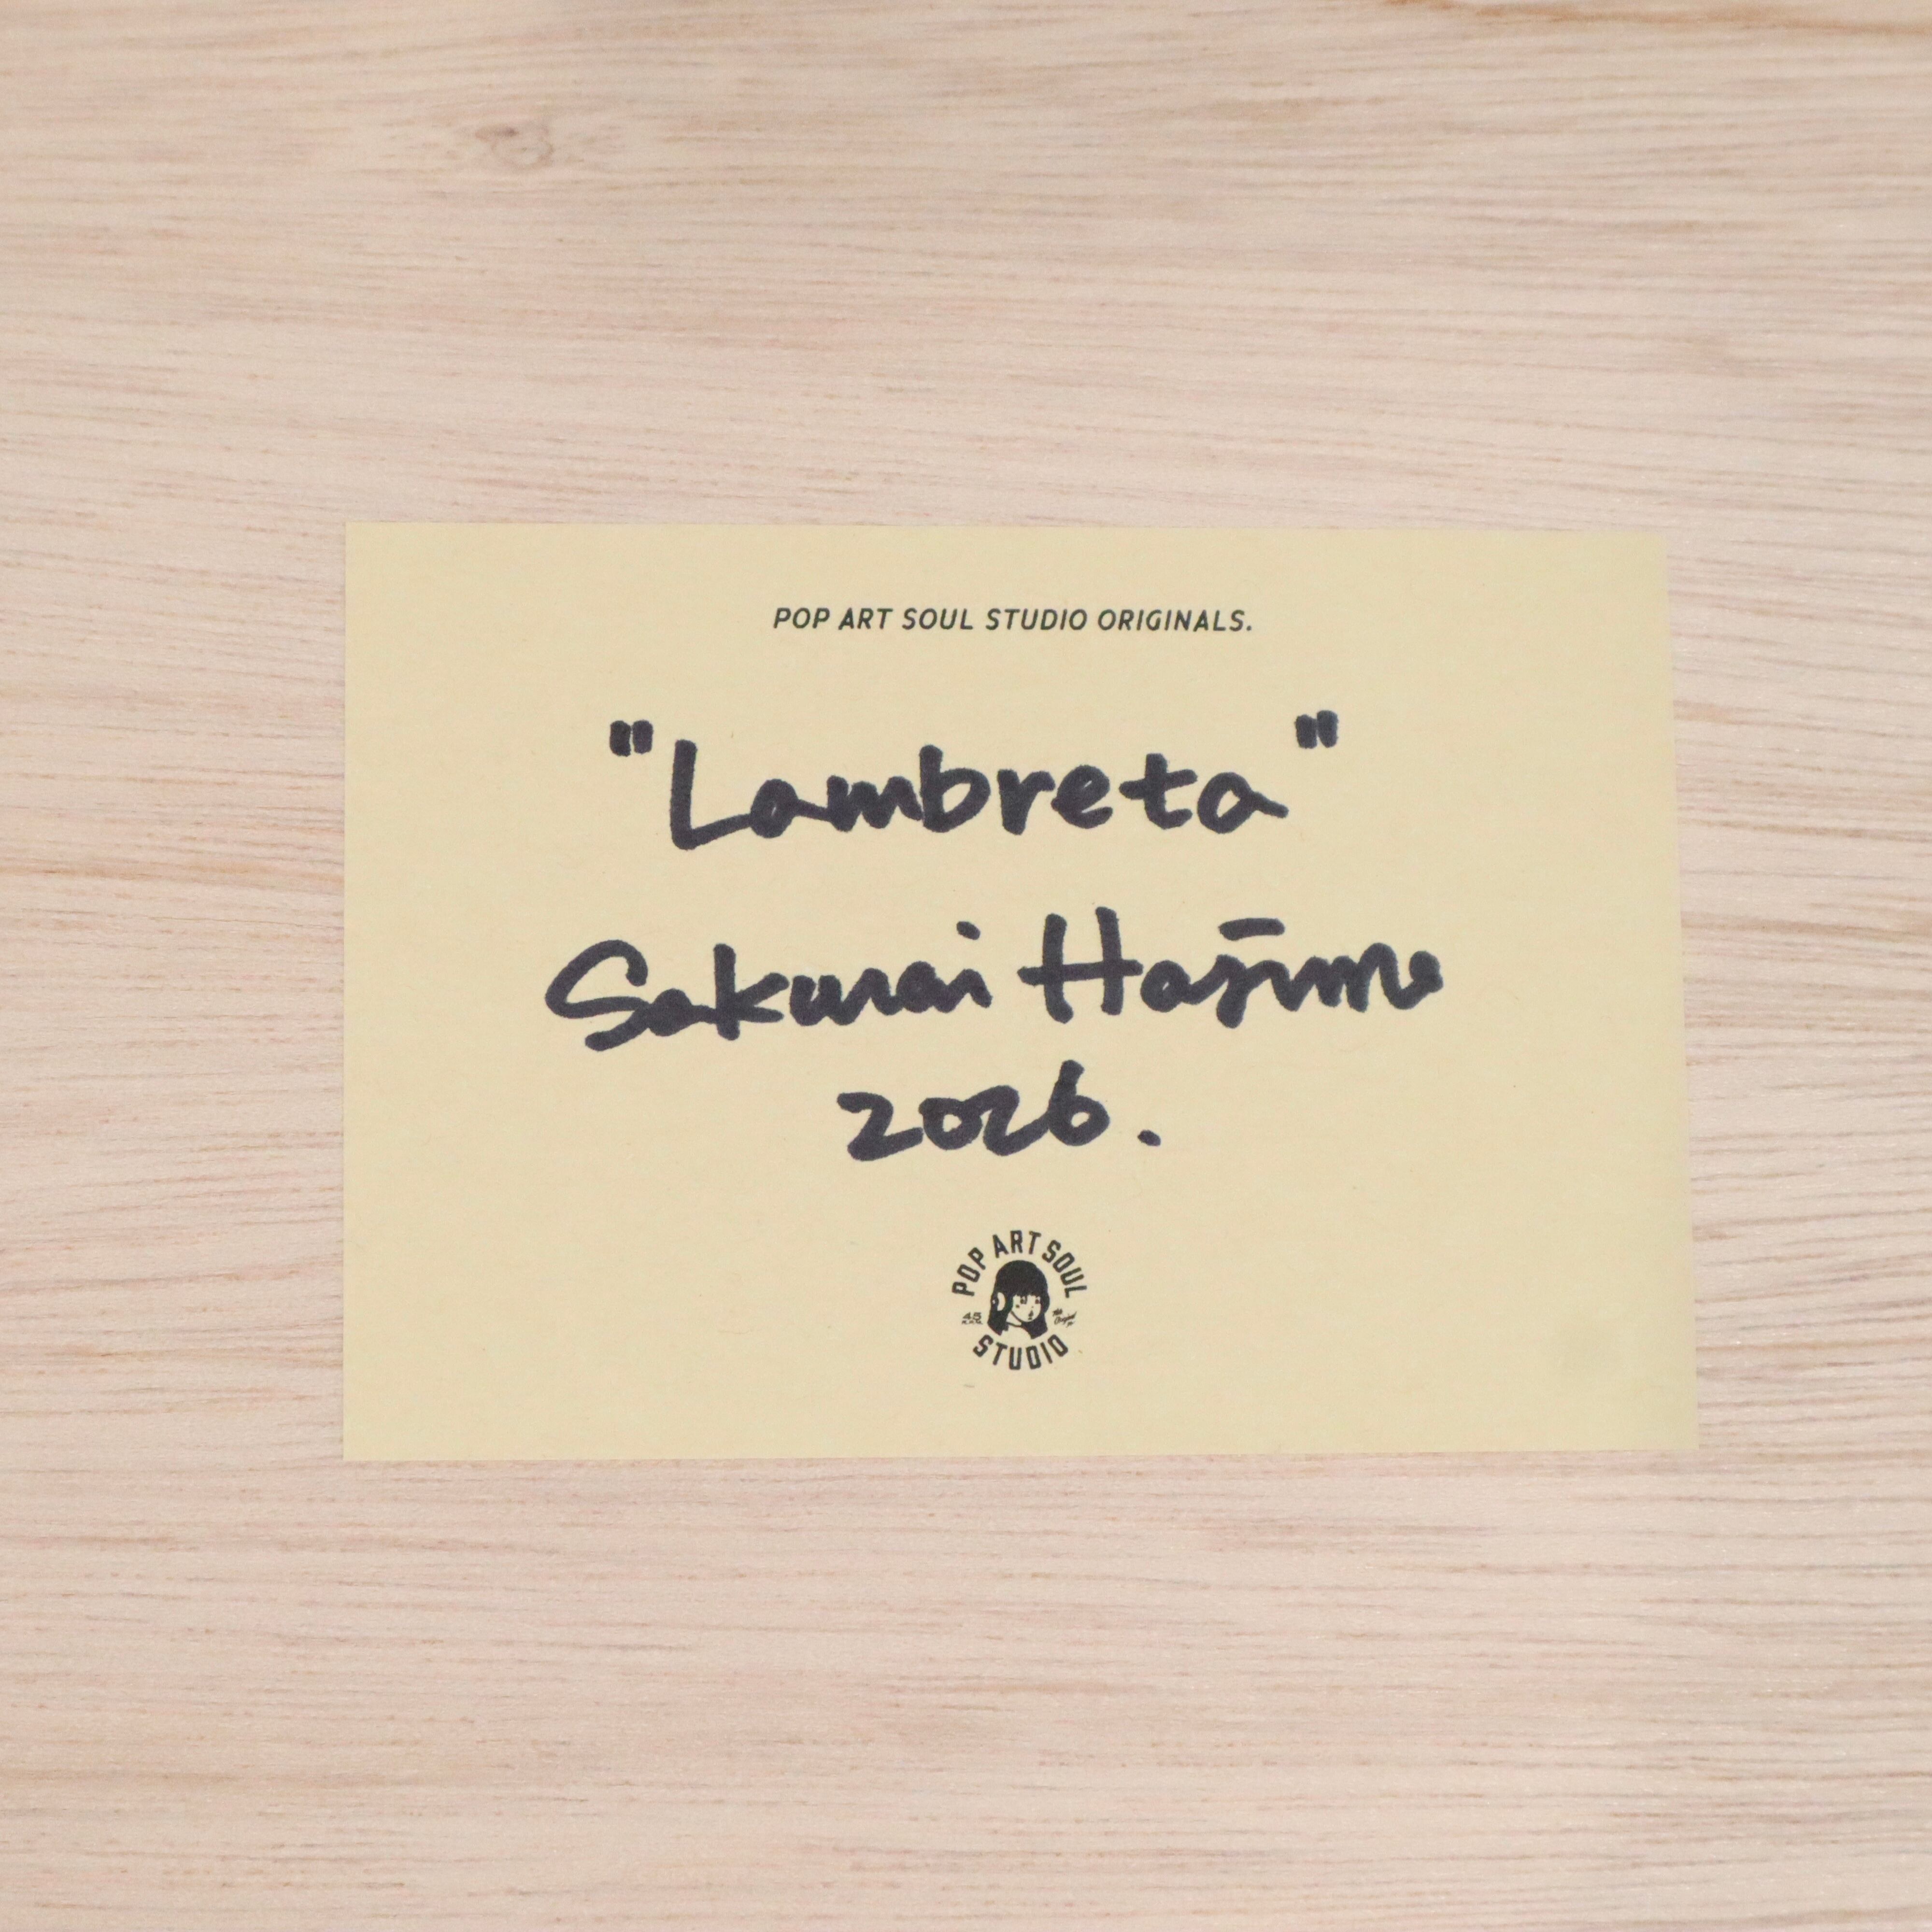 POP ART SOUL STUDIO ORIGINALS.
"Lambreta"
Sakurai Hajime
2026.
POP ART SOUL
STUDIO